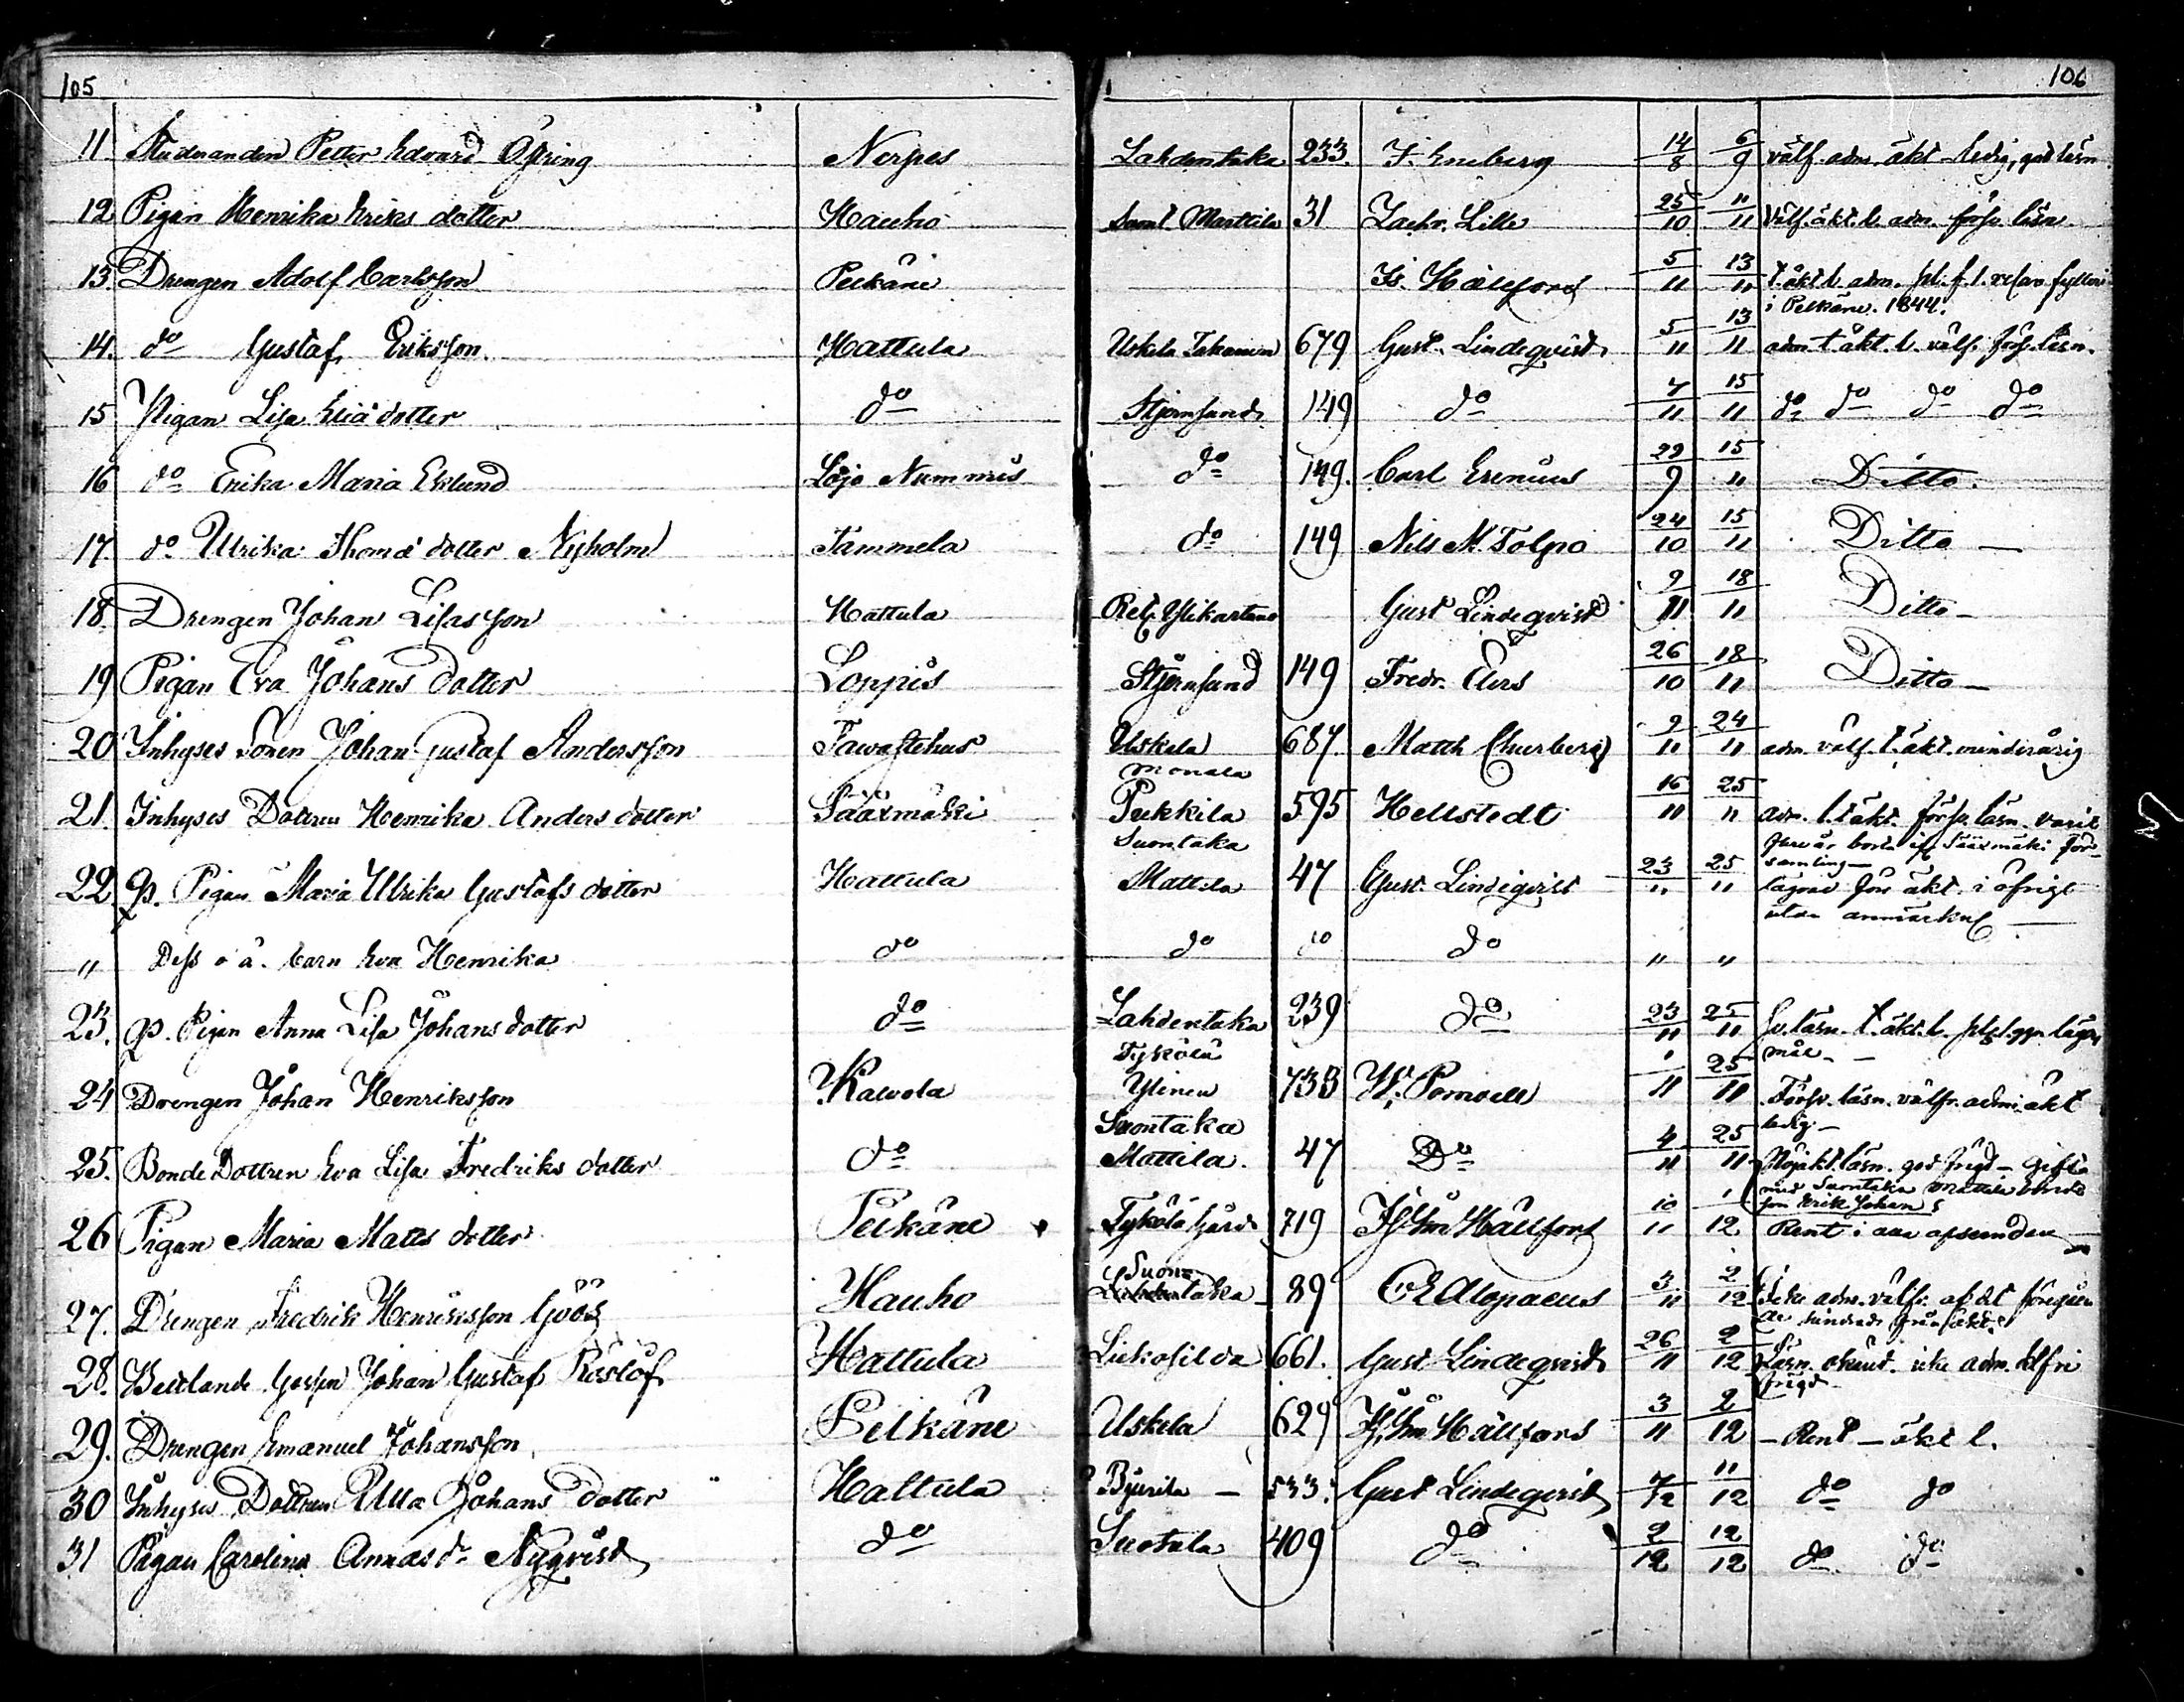 105
106
11. Studeranden Petter Edvard Öhring Nerpes Lahdentaka 233. J. Eneberg 14/8 6/9 välf. adm. äkt. ledig, god läsn.
12 Pigan Henrika Eriks dotter Hauho Suont. Marttila 31 Zachr. Lille 25/10 11/11 välf. äkt. l. adm. försv. läsn.
13. Drengen Adolf Carlsson Pelkäne Is. Hällfors 5/11 13/11 t. äkt. l. adm. pl. f. 1. resan fylleri
i Pelkäne. 1844.
14. do Gustaf Eriksson Hattula Uskela Takanen 679 Gust. Lindeqvist 5/11 13/11 adm. t. äkt. l. välf. förs. läsn.
15 Pigan Lisa Eliä dotter do Stjernsund 149 do 7/11 15/11 do do do do
16 do Erika Maria Eklund Lojo Nummis do 149. Carl Erenius 29/9 15/11 Ditto.
17. do Ulrika Thomæ dotter Nyholm Tammela do 149 Nils M. Tolpo 24/10 15/11 Ditto —
18 Drengen Johan Lisasson Hattula Ret. Ylikartano Gust Lindeqvist 9/11 18/11 Ditto —
19 Pigan Eva Johans dotter Loppis Stjernsund 149 Fredr. Elers 26/10 18/11 Ditto —
20 Inhyses Sonen Johan Gustaf Andersson Tawastehus Uskela 687. Matth Churberg 9/11 24/11 adm. välf. t. äkt. minderårig
Monala
21. Inhyses Dottren Henrika Anders dotter Sääxmäki Pukkila 595 Hellstedt 16/11 25/11 adm. l. t. äkt. försv. läsn. varit
Suontaka
flere år borta if. Sääxmäki för-
samling —
22 Qp. Pigan Maria Ulrika Gustafs dotter Hattula Mattila 47 Gust. Lindeqvist 23/11 25/11 lägrad för äkt. i öfrigt
utan anmärkn. —
" Dess o ä. barn Eva Henrika do do do do " "
23. Qp. Pigan Anna Lisa Johans dotter do Lahdentaka 239 do 23/11 25/11 Sv. läsn. t. äkt. l. plgt. ggn lägers
mål —
Tykölä
24 Drengen Johan Henriksson Kalvola Ylinen 738 W. Pomoell 1/11 25/11 Försv. läsn. välfr. adm. äkt
ledig —
Suontaka
25. Bonde Dottren Eva Lisa Fredriks dotter do Mattila 47 Do 4/11 25/11 Nöjakt. läsn. god frejd — gifta
med Suontaka Mattila bonde
son Erik Johan
26 Pigan Maria Matts dotter Pelkäne Tykölä Gård 719 Is: Em Hällfors 10/11 1/12 Rent i alla afseenden
Suon-
27. Drengen Fredrik Henriksson Göös Hauho Lahdentaka 89 C E Alopaeus 3/11 2/12 Icke adm. välfr. af det föregående
28. Vallande Gossen Johan Gustaf Röslöf Hattula Liekosilda 661. Gust Lindeqvist 26/11 2/12 Läsn. okänd. icke adm. klfri
frejd —
29. Drengen Emanuel Johansson Pelkäne Uskela 629 Is: Em Hällfors 3/11 2/12 — Rent — äkt l.
30 Inhyses Dottren Ulla Johans dotter Hattula Bjurila — 533. Gust Lindeqvist 7/12 11/12 do do
31 Pigan Carolina Annas dr Nyqvist do Suotula 409 do 2/12 12/12 do do